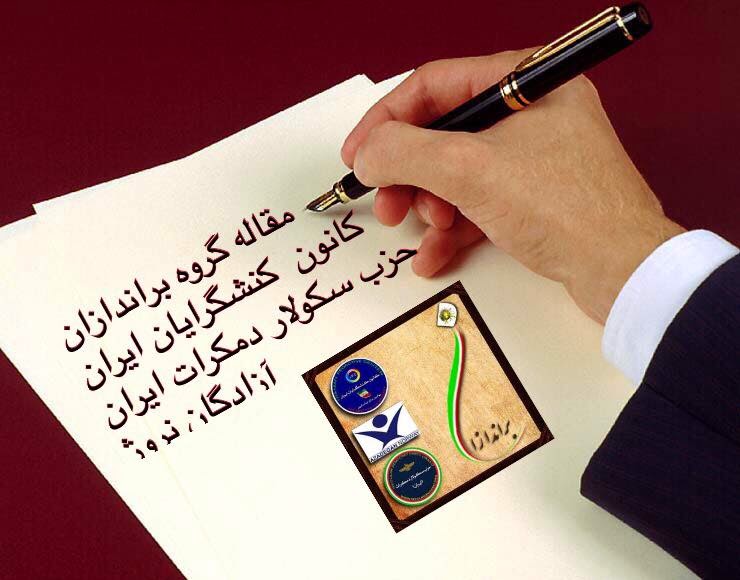 مقاله گروه براندازان
کانون کنشگرایان ایران
حزب سکولار دمکرات ایران
آزادگان نروژ
براندازا